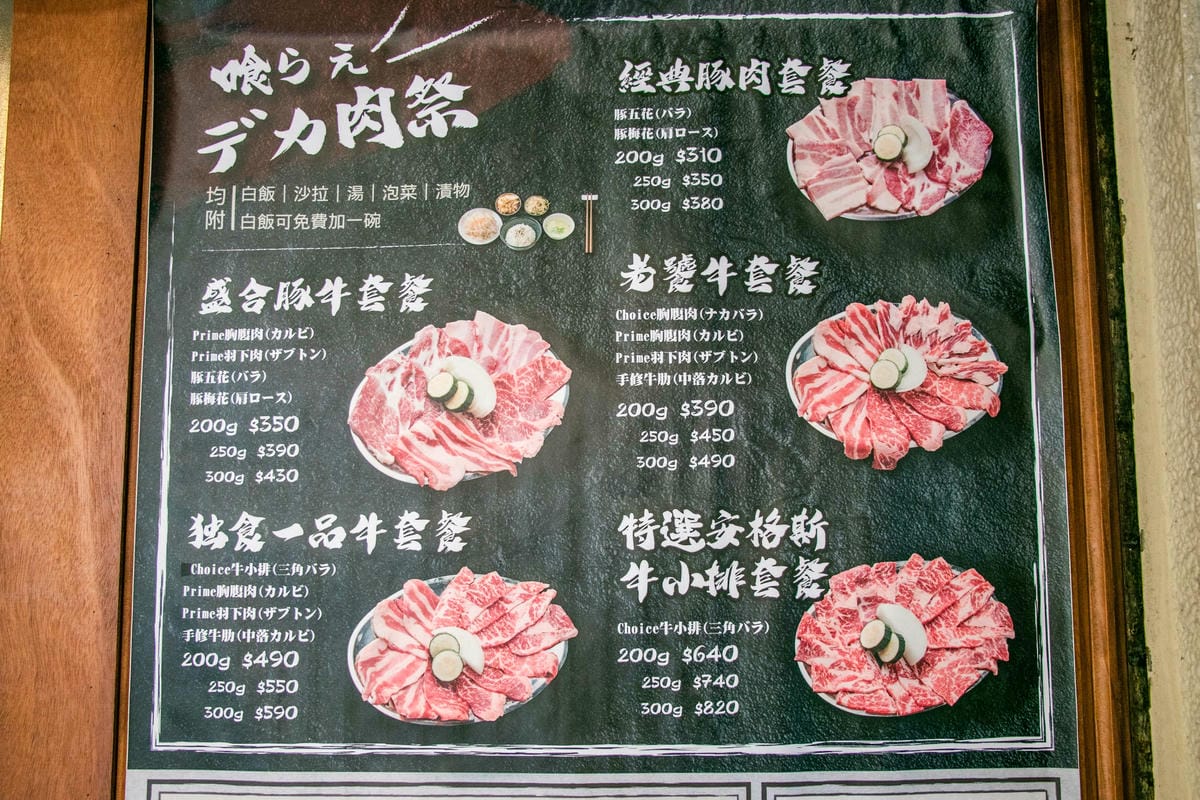 喰らえ
デカ肉祭
均附
白飯｜沙拉｜湯｜泡菜｜漬物
白飯可免費加一碗
盛合豚牛套餐
Prime胸腹肉(カルビ)
Prime羽下肉(ザブトン)
豚五花(バラ)
豚梅花(肩ロース)
200g $350
250g $390
300g $430
独食一品牛套餐
Choice牛小排(三角バラ)
Prime胸腹肉(カルビ)
Prime羽下肉(ザブトン)
手修牛肋(中落カルビ)
200g $490
250g $550
300g $590
經典豚肉套餐
豚五花(バラ)
豚梅花(肩ロース)
200g $310
250g $350
300g $380
老饕牛套餐
Choice胸腹肉(ナカバラ)
Prime胸腹肉(カルビ)
Prime羽下肉(ザブトン)
手修牛肋(中落カルビ)
200g $390
250g $450
300g $490
特選安格斯
牛小排套餐
Choice牛小排(三角バラ)
200g $640
250g $740
300g $820